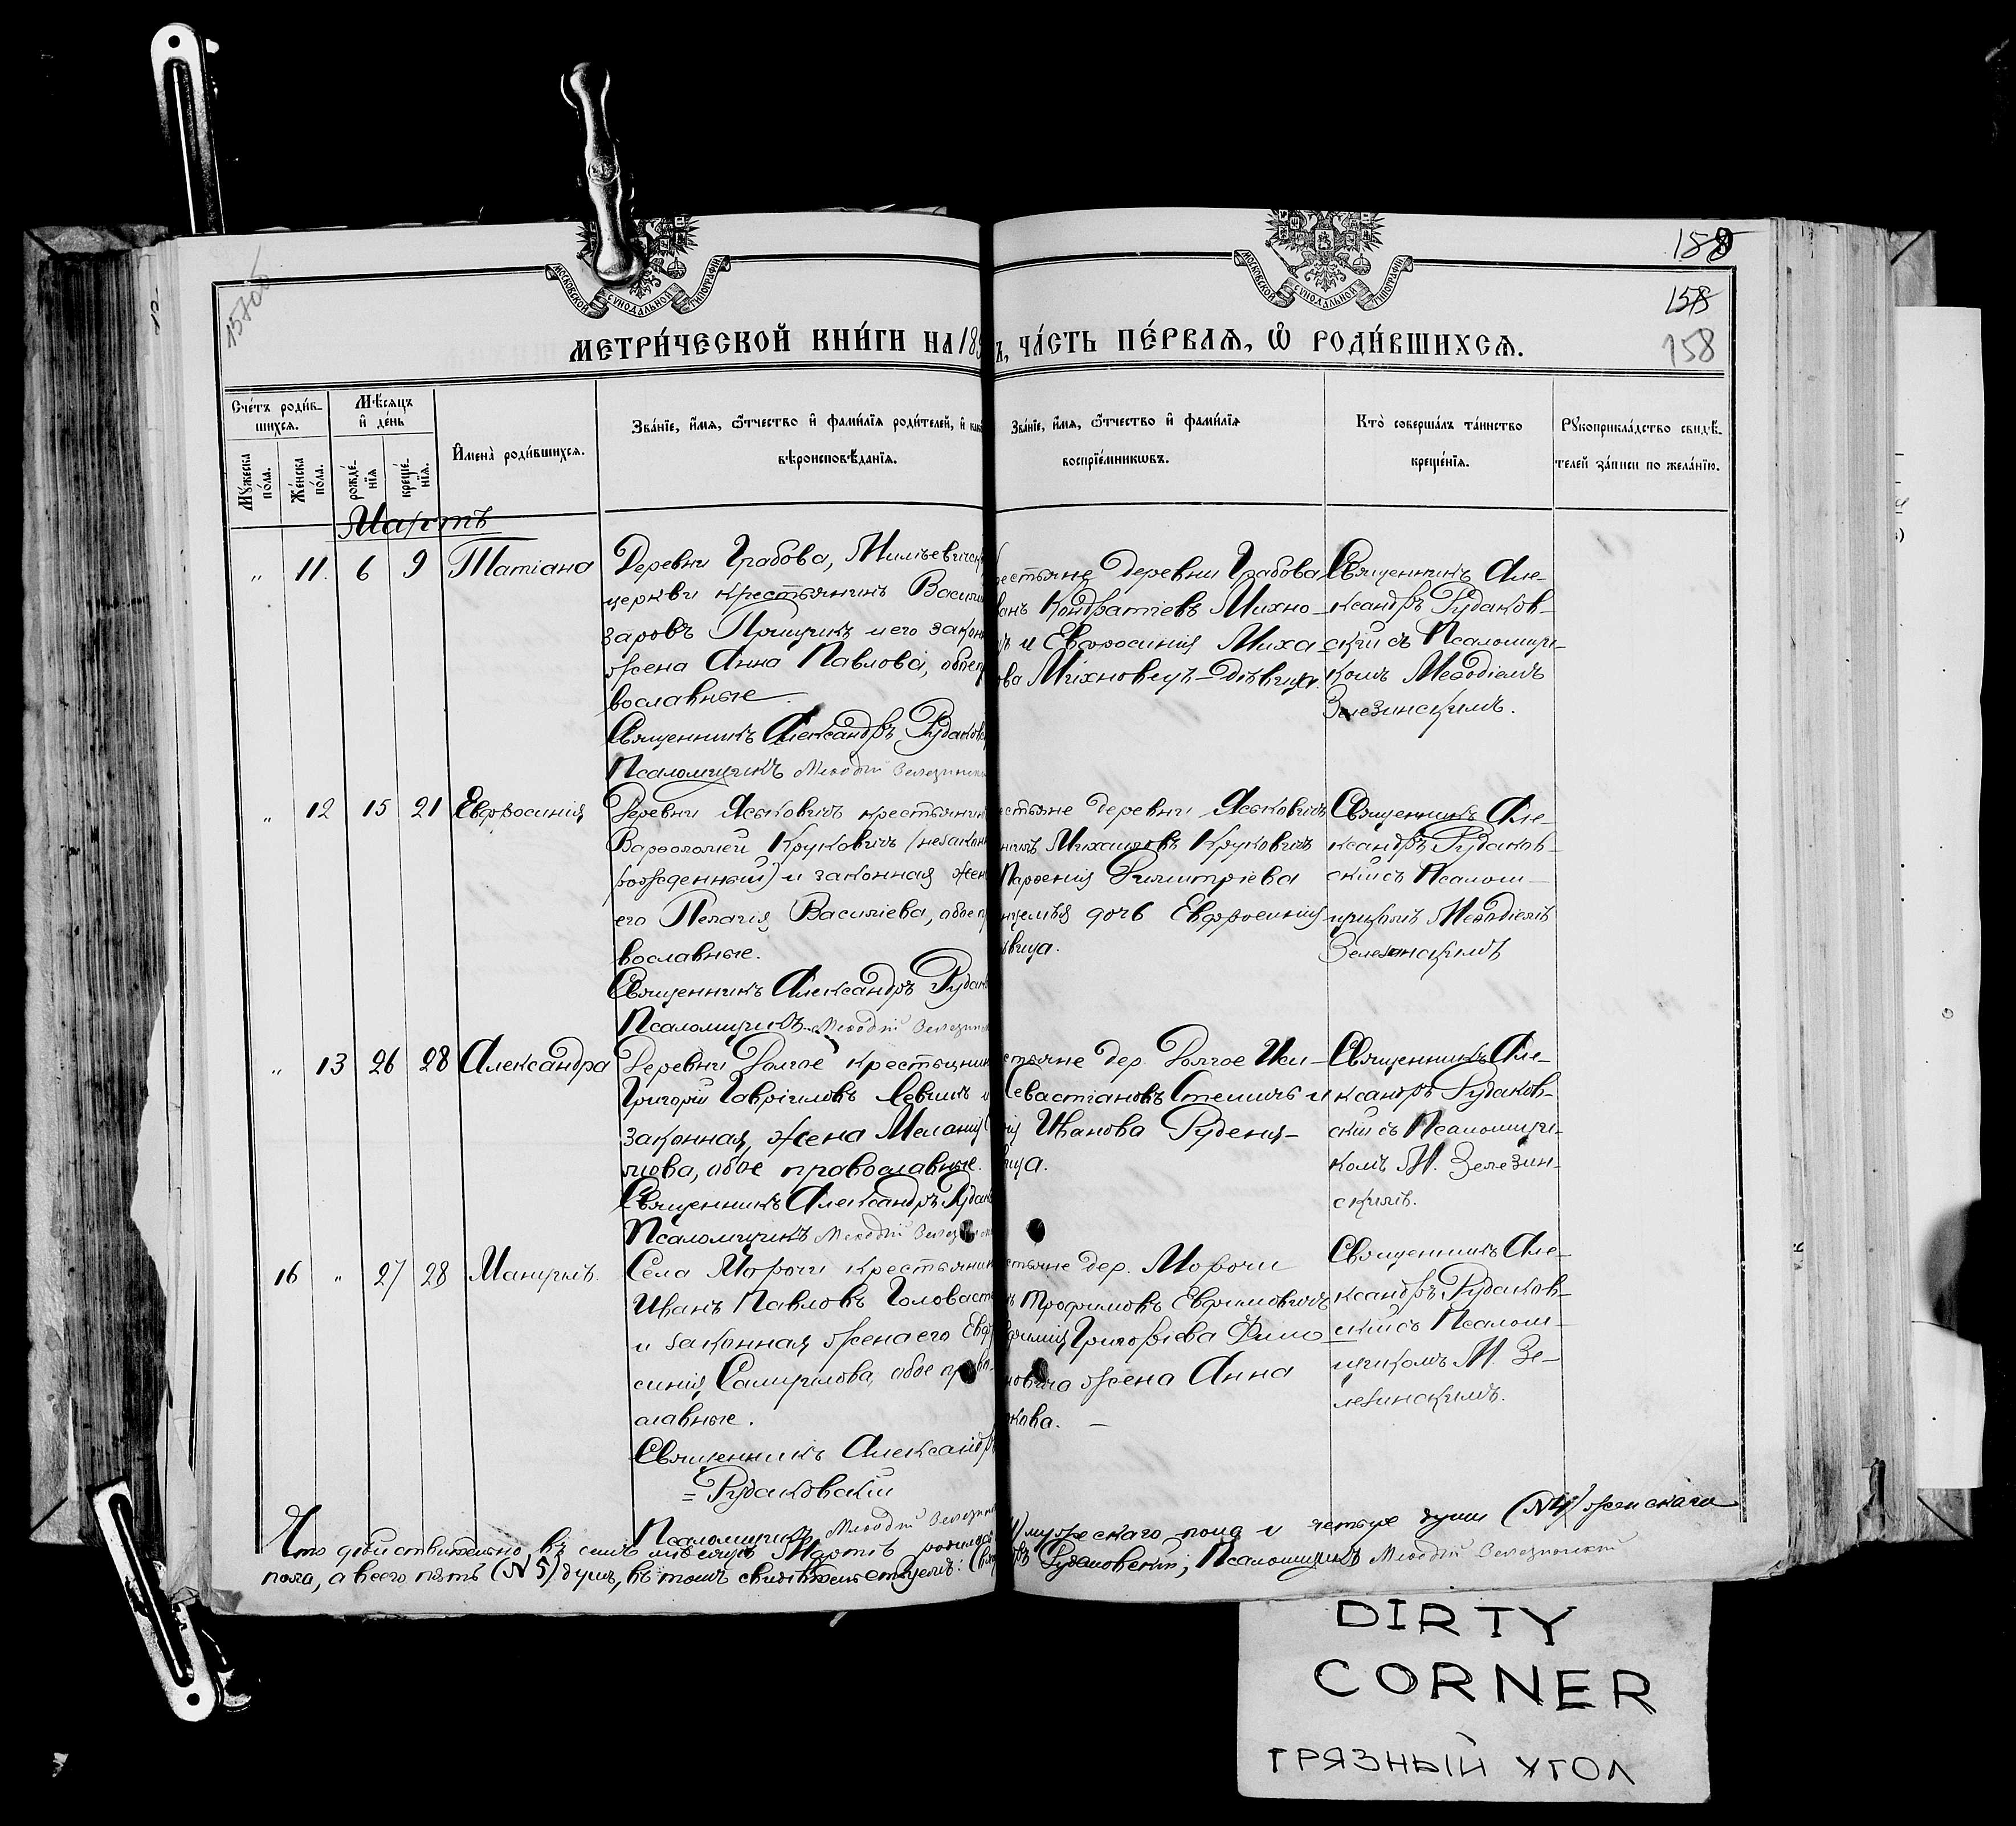 158
158
158
158об
МОСКОВСКОЙ СѴНОДАЛЬНОЙ ТИПОГРАФІИ
МОСКОВСКОЙ СѴНОДАЛЬНОЙ ТИПОГРАФІИ
МЕТРИ́ЧЕСКОЙ КНИ́ГИ НА 189
Ъ, ЧА́СТЬ ПЕ́РВАЯ, Ѡ РОДИ́ВШИХСЯ.
Сче́тъ роди́в-
шихся.
Мѣ́сяцъ
и҆ де́нь
Мꙋ́жеска
по́ла.
Же́нска
по́ла.
рожде́-
нїя
креще́-
нїя.
И҆мена̀ роди́вшихся.
Зва́нїе, и҆́мя, ѻ҆́тчество и҆ фами́лїя роди́телей, и҆ как
вѣроисповѣ́данїя.
Зва́нїе, и҆́мя, ѻ҆́тчество и҆ фами́лїя
воспрїе́мниковъ.
Кто̀ соверша́лъ та́инство
креще́нїя.
Рꙋкоприкла́дство свидѣ́-
телей за́писи по жела́нїю.
Мартъ
„ 11. 6 9 Татіана
Деревни Грабова, Мильевичск
церкви крестьянинъ Васил
заровъ Прищикъ и его закон
жена Анна Павлова, обоепр
вославные.
Священникъ Александръ Рудаков
Псаломщикъ Меѳодій Зелезинск
рестьяне деревни Грабова
ванъ Кондратіевъ Михно-
ъ и Евфросинія Миха
ова Михновецъ-дѣвица.
Священникъ Але-
ксандръ Рудаков-
скій съ Псаломщи-
комъ Меѳодіемъ
Зелезинскимъ.
„ 12 15 21 Евфросинія
Деревни Яськовичъ крестьянин
Варѳоломей Круковичъ (незакон
рожденный) и законная жен
его Пелагія Васильева, обоепр
вославные.
Священникъ Александръ Рудак
Псаломщикъ Меѳодій Зелезинс
стьяне деревни Яськовичъ
Михаиловъ Круковичъ
Парѳенія Димитріева
дочь Евфросинія
ѣвица.
Священникъ Але-
ксандръ Рудаков-
скій съ Псалом-
щикомъ Меѳодіемъ
Зелезинскимъ
„ 13 26 28 Александра
Деревни Долгое крестьянин
Григорій Гавріиловъ Левчикъ и
законная жена Меланія
мова, обое православные.
Священникъ Александръ Рудак
Псаломщикъ Меѳодій Зелезинск
стьяне дер. Долгое
Севастіановъ и
ія Иванова Руденя-
вица.
Священникъ Але-
ксандръ Рудаков-
скій съ Псаломщи-
комъ М. Зелезин-
скимъ.
16 „ 27 28 Мануилъ.
Села Морочи крестьянин
Иванъ Павловъ Головаст
и законная жена его Евф
синія Самуилова, обое право-
славные.
Священникъ Александръ
= Рудаковскій
Псаломщикъ Меѳодій Зелезинс
стьяне дер. Морочи
Трофимовъ Евфимовичъ
фимія Григоріева Фимо
мовича жена Анна
кова. —
Священникъ Але-
ксандръ Рудаков-
скій съ Псалом-
щикомъ М. Зе-
лезинскимъ.
Что дѣйствительно въ семъ мѣсяцѣ Мартѣ родилось
1/ мужескаго пола и четыре души (№4) женскаго
пола, а всего пять (№5) душъ, въ томъ свидѣтельствуемъ:
Рудаковскій, Псаломщикъ Меѳодій Зелезинскій
DIRTY
CORNER
ГРЯЗНЫЙ УГОЛ